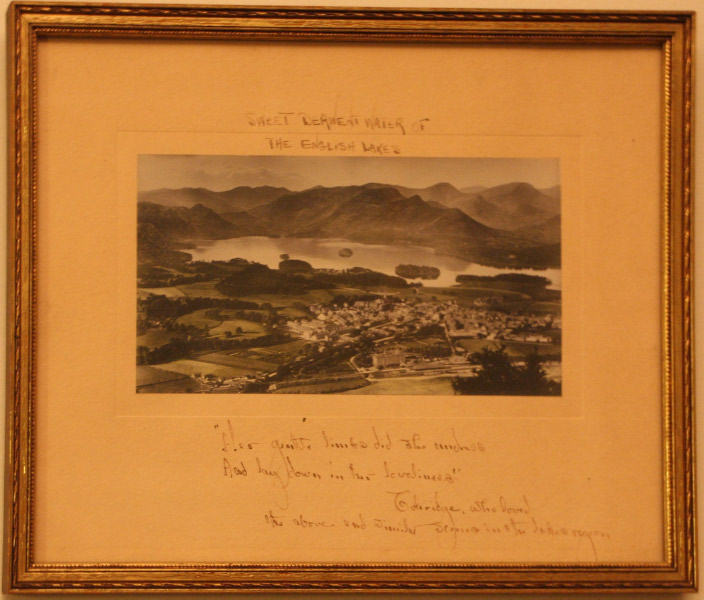 SWEET DERWENT WATER OF
THE ENGLISH LAKES
"Her gentle limbs did she undress
And lay down in her loveliness"
Coleridge, who loved
the above and similar scenes in the lakes region